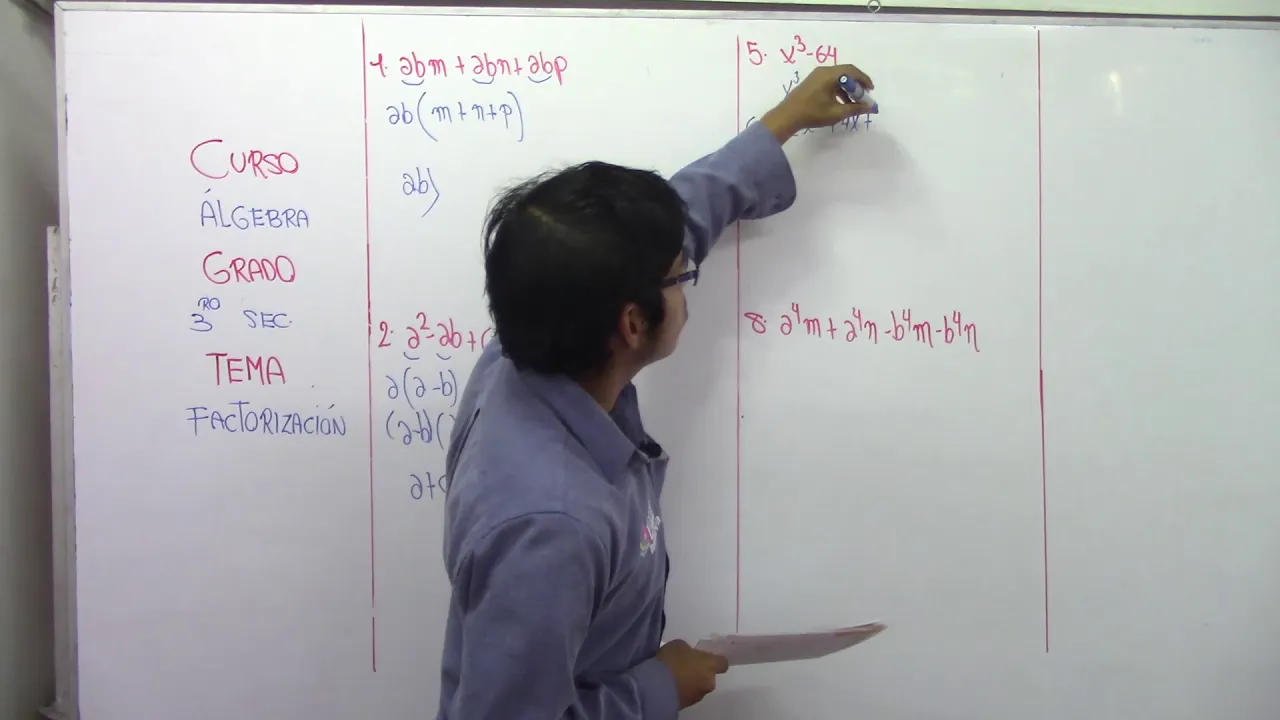 CURSO
ÁLGEBRA
GRADO
3RO SEC.
TEMA
FACTORIZACIÓN
1. abm + abn + abp
ab(m+n+p)
ab)
2. a²-ab+
a(a-b)
(a-b)(
a+
5. x³-64
x³
+4x+
8. a⁴m + a⁴n - b⁴m - b⁴n